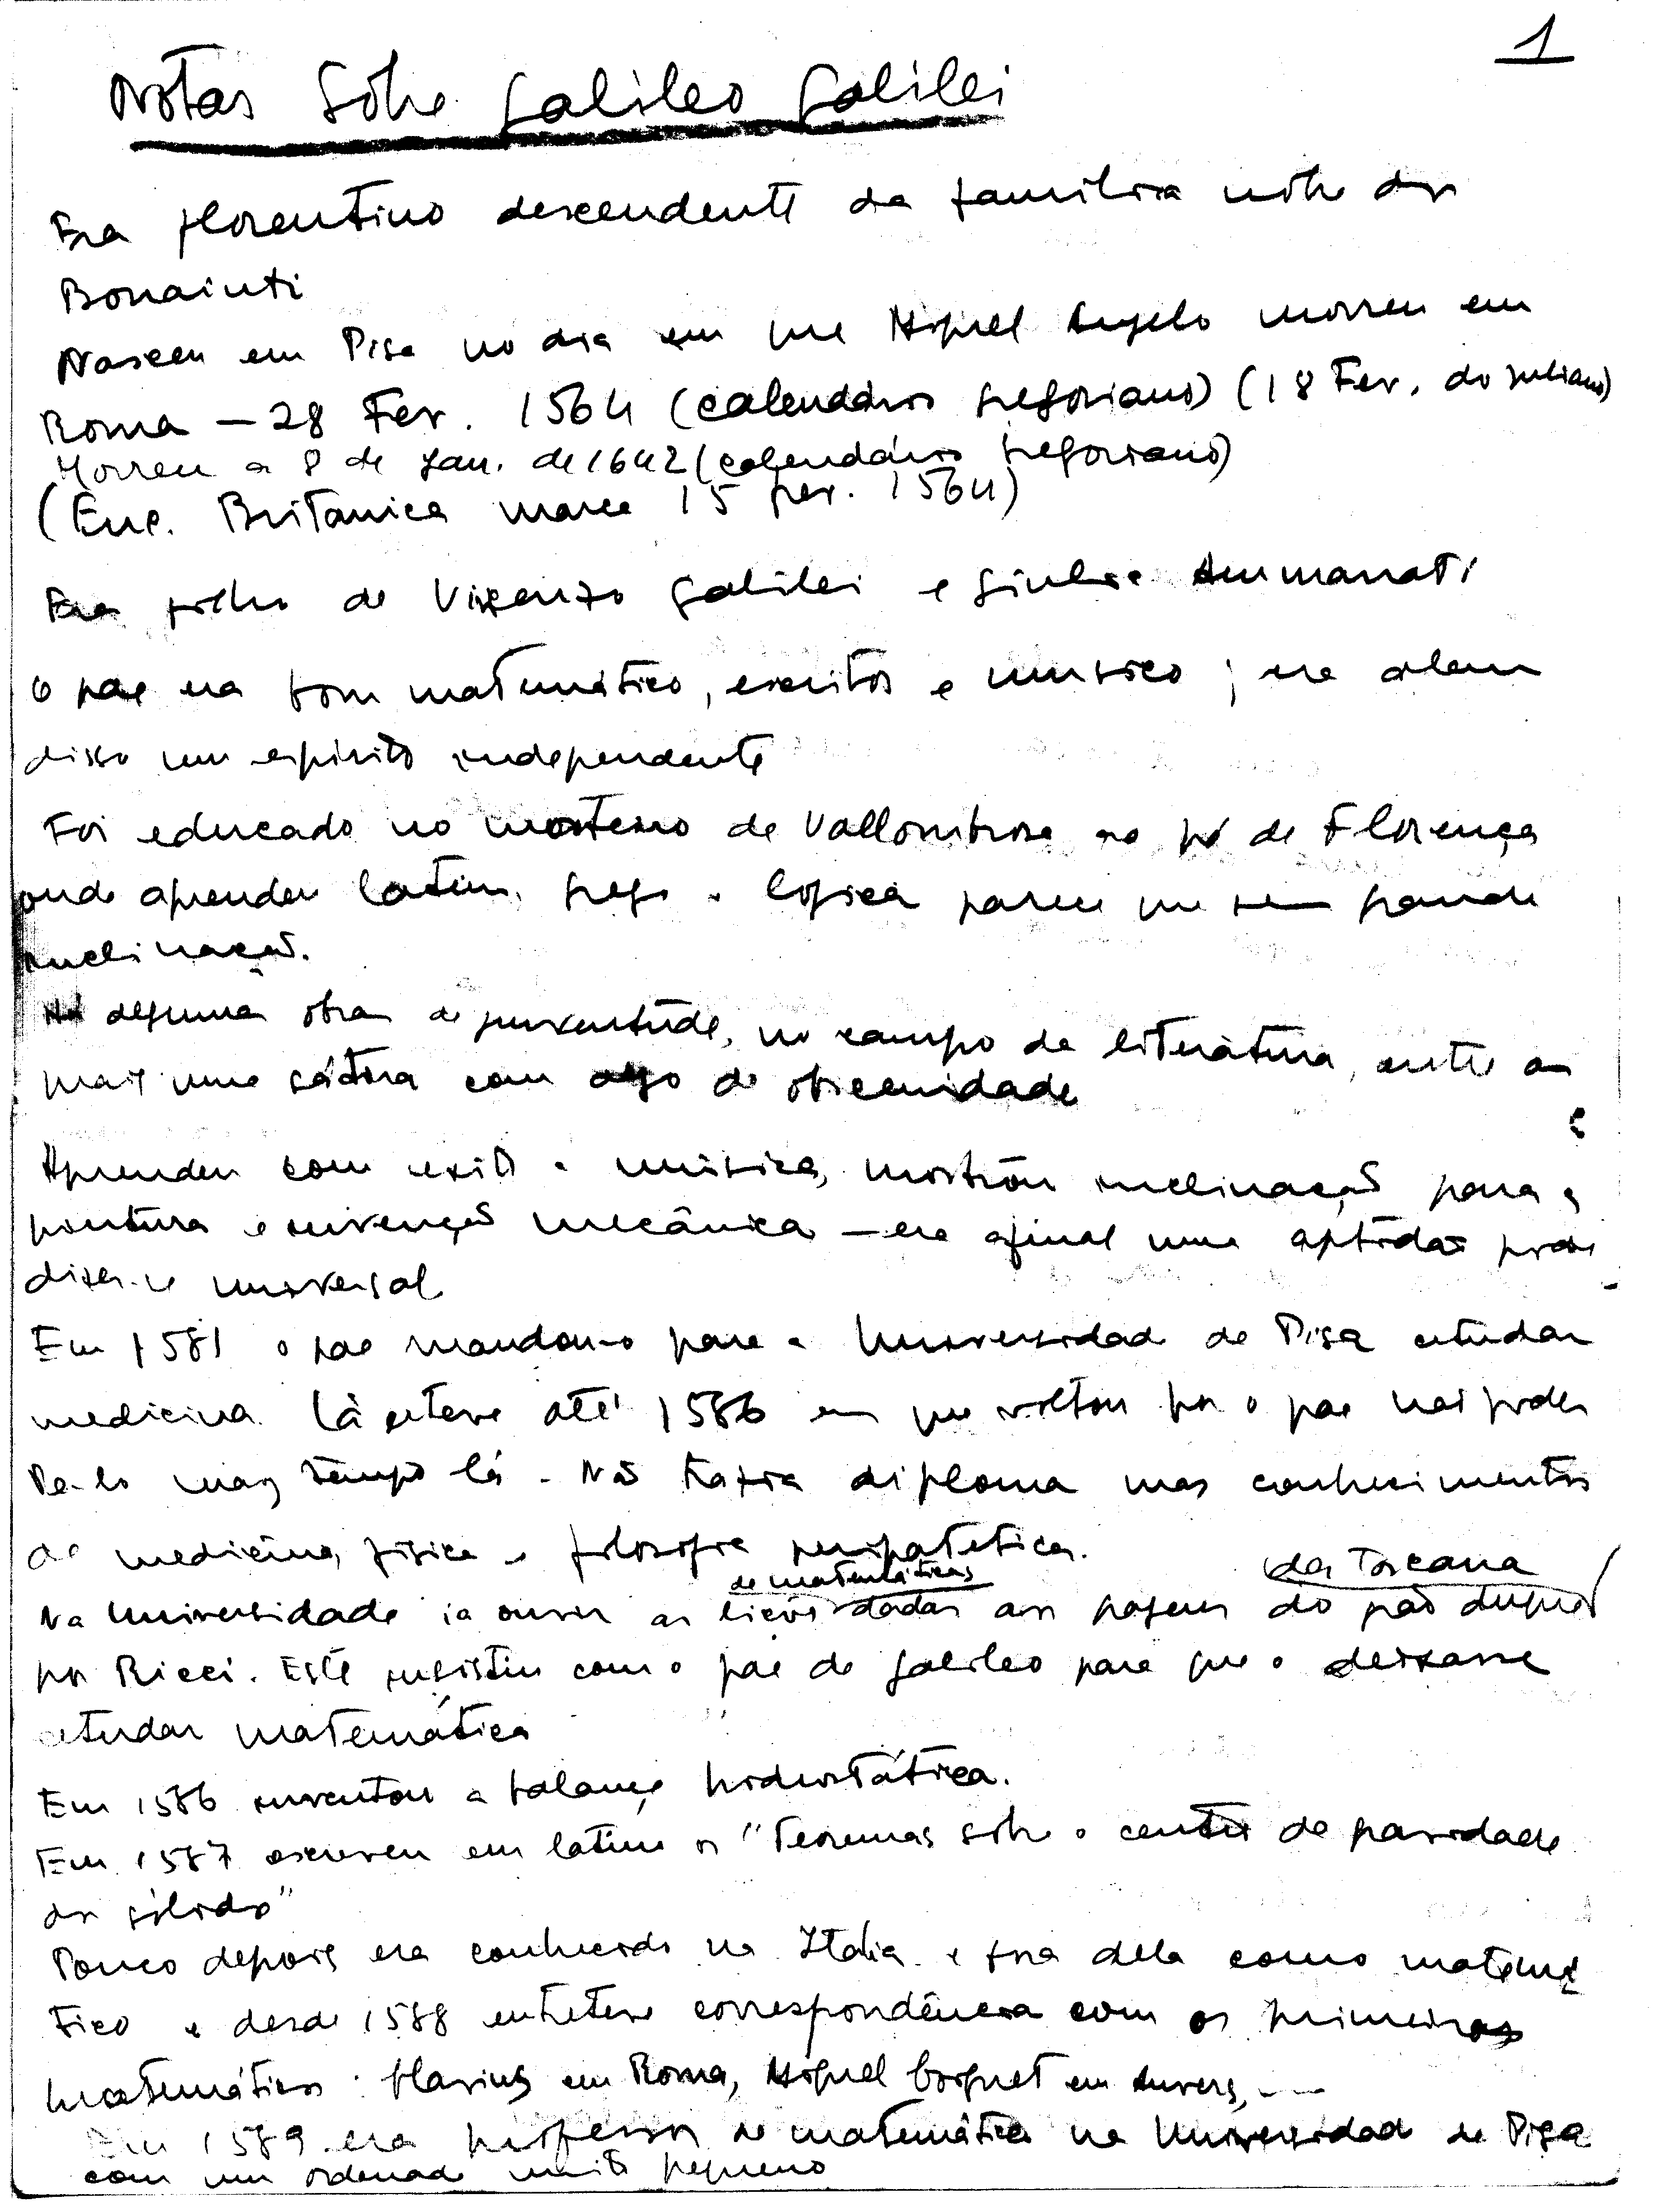 1
Notas sobre Galileo Galilei
Era florentino descendente da família nobre dos
Bonaiuti
Nasceu em Pisa no dia em que Miguel Angelo morreu em
Roma — 28 Fev. 1564 (calendário gregoriano) (18 Fev. do juliano)
Morreu a 8 de Jan. de 1642 (calendário gregoriano)
(Enc. Britanica marca 15 fev. 1564)
Era filho de Vicenzo Galilei e Giulia Ammanati
O pae era bom matemático, escritor e musico; era alem
disso um espirito independente
Foi educado no mosteiro de Vallombrosa ao pé de Florença
onde aprendeu latim, grego e logica parece que sem grande
inclinação.
Há alguma obra de juventude, no campo da literatura, entre as
mais uma sátira com algo de obscenidade
Aprendeu com exito a música, mostrou inclinação para a
pintura e invenção mecânica — era afinal uma aptidão pode
dizer-se universal
Em 1581 o pae mandou-o para a Universidade de Pisa estudar
medicina. Lá esteve até 1586 em que voltou por o pae não poder
te-lo mais tempo lá. Não trazia diploma mas conhecimentos
de medicina, fisica e filosofia peripatetica.
de matemáticas da Toscana
Na Universidade ia ouvir as lições dadas aos pagens do grão duque
por Ricci. Este insistiu com o pae de Galileo para que o deixasse
estudar matemática
Em 1586 inventou a balança hidrostática.
Em 1587 escreveu em latim os "Teoremas sobre o centro de gravidade
dos sólidos"
Pouco depois era conhecido na Italia e fora dela como matemá
tico e desde 1588 entreteve correspondência com os primeiros
matemáticos: Clavius em Roma, Miguel Coignet em Anvers, ---
Em 1589 era professor de matemática na Universidade de Pisa
com um ordenado muito pequeno